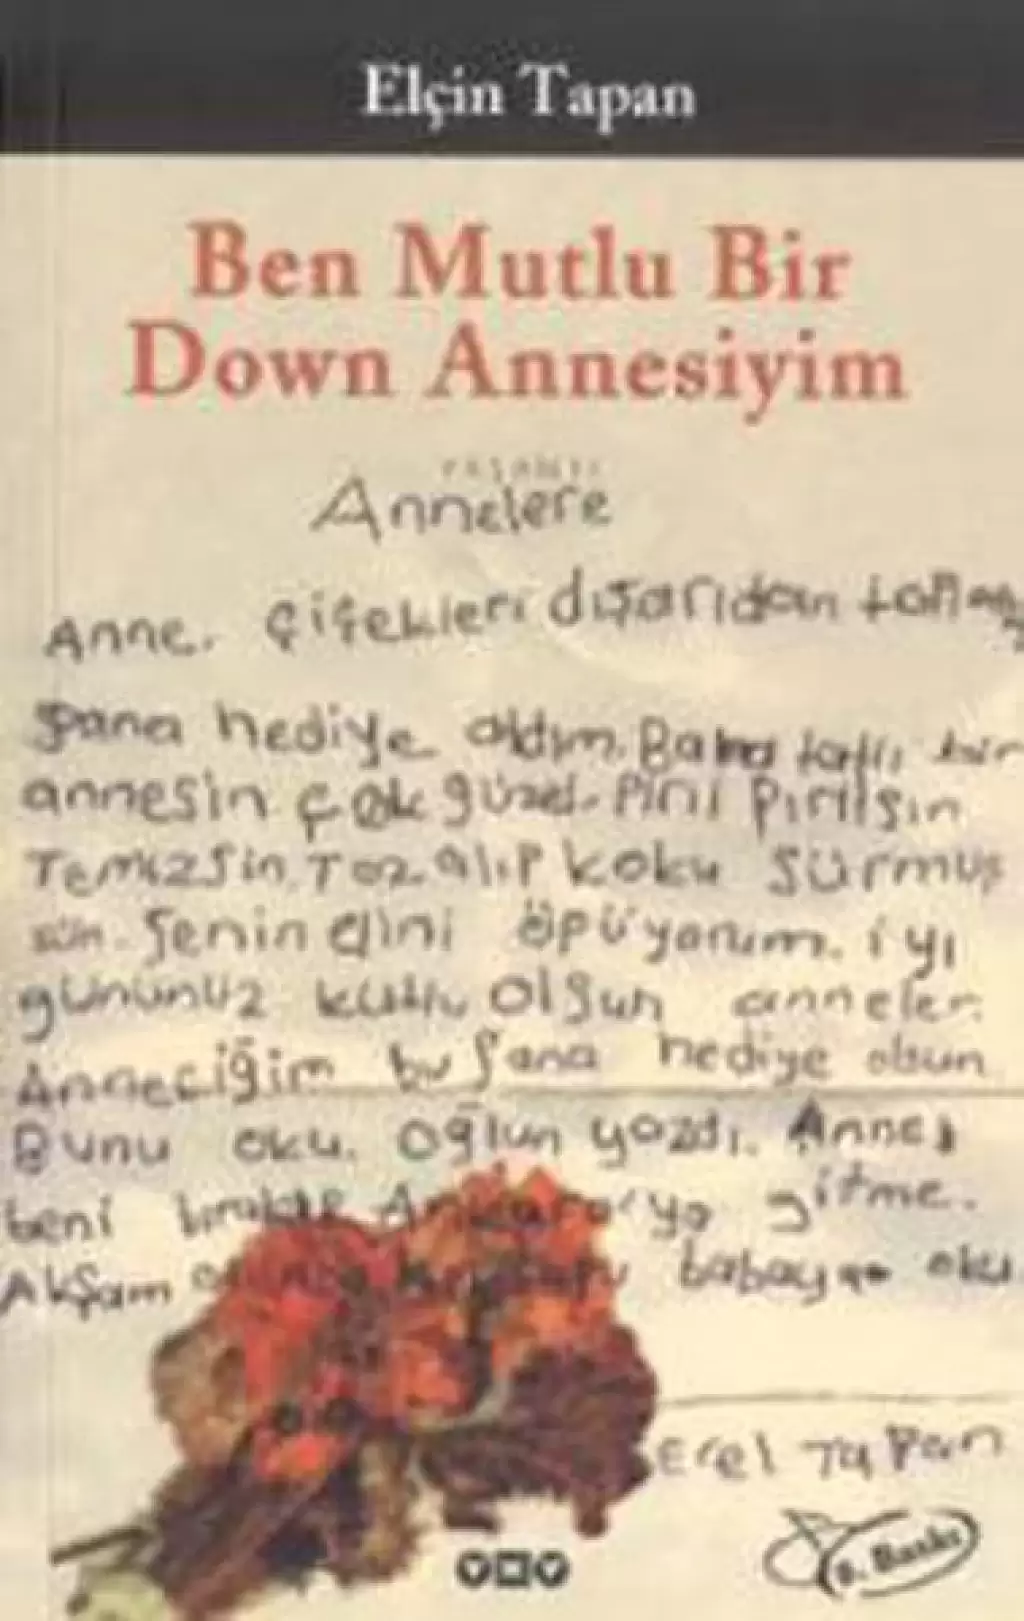 Elçin Tapan
Ben Mutlu Bir
Down Annesiyim
YAŞANTI
Annelere
Anne. Çiçekleri dışarıdan
Şana hediye aldım. Bana tatlı bir
annesin çok güzel. Piril pirilsin
Temizsin. Toz alıp koku sürmüş
sün. Şenin elini öpüyorum. iyi
gününüz kutlu olsun anneler.
Anneciğim bu Şana hediye olsun
Bunu oku. oğlun yazdı. Anne
beni bırakıp Ankara'ya gitme.
Akşam babaya oku.
Erel Tapan
Baskı